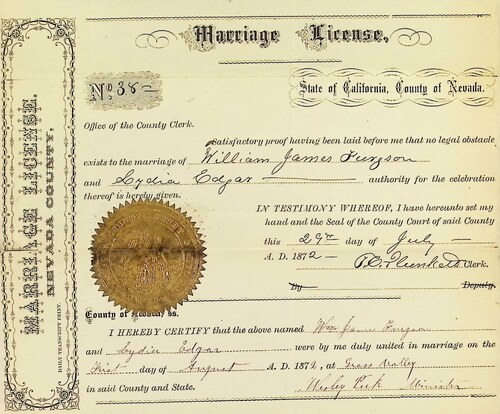 Marriage License,
No. 38
State of California, County of Nevada.
Office of the County Clerk.
Satisfactory proof having been laid before me that no legal obstacle
exists to the marriage of William James Furgson
and Lydia Edgar authority for the celebration
thereof is hereby given.
IN TESTIMONY WHEREOF, I have hereunto set my
hand and the Seal of the County Court of said County
this 29th day of July
A. D. 1872 Clerk.
By Deputy.
County of Nevada, ss.
I HEREBY CERTIFY that the above named Wm James Furgson
and Lydia Edgar were by me duly united in marriage on the
First day of August A. D. 1872, at Grass Valley
in said County and State. Wesley Minister
MARRIAGE LICENSE.
NEVADA COUNTY.
DAILY TRANSCRIPT PRINT.